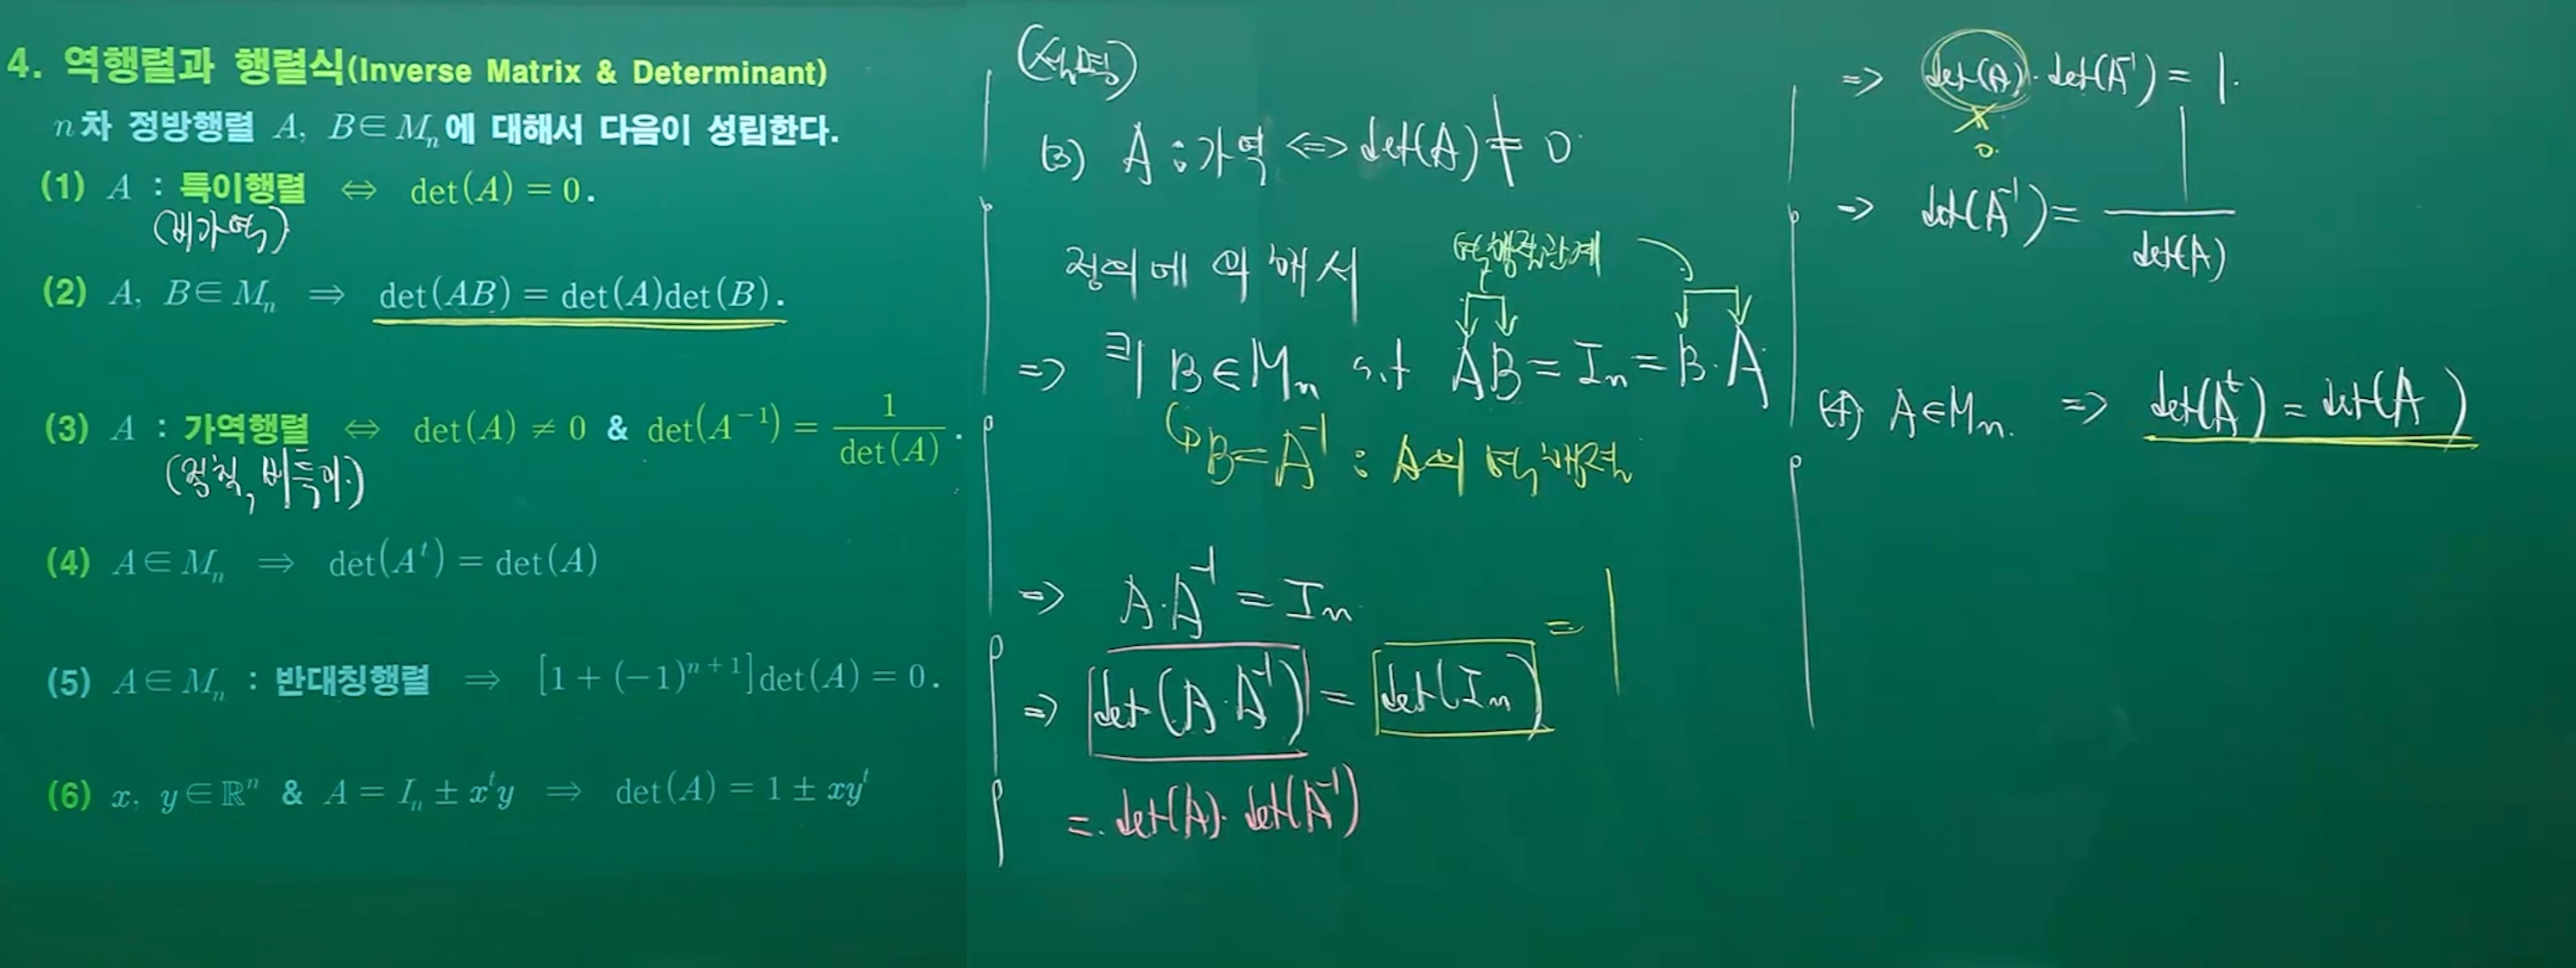 4. 역행렬과 행렬식(Inverse Matrix & Determinant)
n차 정방행렬 A, B∈Mₙ에 대해서 다음이 성립한다.
(1) A : 특이행렬 ⇔ det(A) = 0.
(비가역)
(2) A, B∈Mₙ ⇒ det(AB) = det(A)det(B).
(3) A : 가역행렬 ⇔ det(A) ≠ 0 & det(A⁻¹) = 1/det(A).
(정칙, 비특이.)
(4) A∈Mₙ ⇒ det(Aᵗ) = det(A)
(5) A∈Mₙ : 반대칭행렬 ⇒ [1+(−1)ⁿ⁺¹]det(A) = 0.
(6) x, y∈ℝⁿ & A = Iₙ ± xᵗy ⇒ det(A) = 1 ± xyᵗ
(설명)
(3) A : 가역 ⇔ det(A) ≠ 0
정의에 의해서
역행렬관계
⇒ ∃| B∈Mₙ s.t AB = Iₙ = B·A
B = A⁻¹ : A의 역행렬
⇒ A·A⁻¹ = Iₙ
⇒ det(A·A⁻¹) = det(Iₙ) = 1
= det(A)·det(A⁻¹)
⇒ det(A)·det(A⁻¹) = 1.
0.
⇒ det(A⁻¹) = 1/det(A)
(4) A∈Mₙ. ⇒ det(Aᵗ) = det(A)